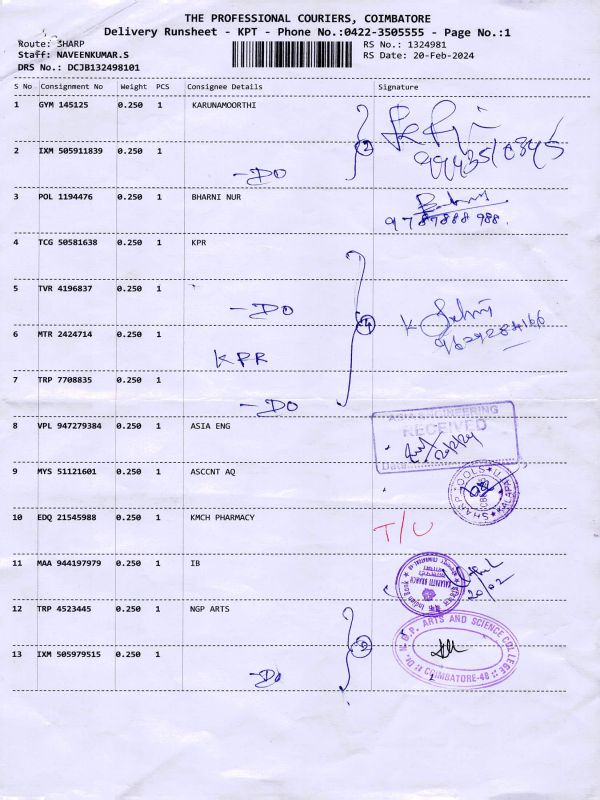 THE PROFESSIONAL COURIERS, COIMBATORE
Delivery Runsheet - KPT - Phone No.:0422-3505555 - Page No.:1
Route: 3HARP
RS No.: 1324981
Staff: NAVEENKUMAR.S
RS Date: 20-Feb-2024
DRS No.: DCJB132498101
S No Consignment No Weight PCS Consignee Details Signature
1 GYM 145125 0.250 1 KARUNAMOORTHI
2 IXM 505911839 0.250 1
- DO
2
3 POL 1194476 0.250 1 BHARNI NUR
9787888 988.
4 TCG 50581638 0.250 1 KPR
5 TVR 4196837 0.250 1
- DO
4
6 MTR 2424714 0.250 1
KPR
7 TRP 7708835 0.250 1
- DO
8 VPL 947279384 0.250 1 ASIA ENG
ASIA ENGINEERING
RECEIVED
Date
9 MYS 51121601 0.250 1 ASCCNT AQ
10 EDQ 21545988 0.250 1 KMCH PHARMACY
T/U
11 MAA 944197979 0.250 1 IB
Indian Bank
KALAPATTI BRANCH
20/02
12 TRP 4523445 0.250 1 NGP ARTS
Dr. N.G.P. ARTS AND SCIENCE COLLEGE
COIMBATORE-48
13 IXM 505979515 0.250 1
- Do
2